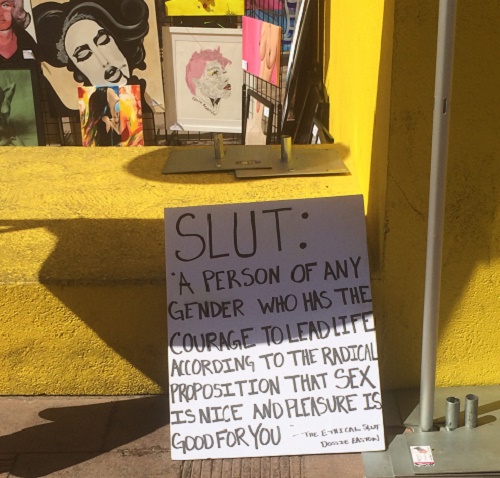 SLUT:
"A PERSON OF ANY
GENDER WHO HAS THE
COURAGE TO LEAD LIFE
ACCORDING TO THE RADICAL
PROPOSITION THAT SEX
IS NICE AND PLEASURE IS
GOOD FOR YOU
- THE ETHICAL SLUT
DOSSIE EASTON